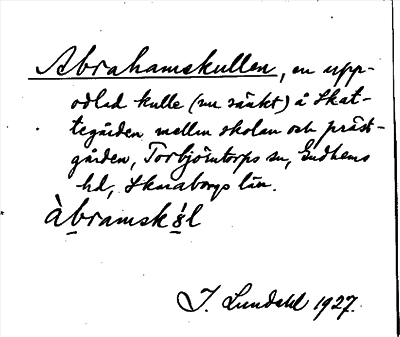 Abrahamskullen, en upp-
odlad kulle (nu sänkt) å Skat-
tegården mellan skolan och präst-
gården, Torbjörntorps sn, Gudhems
hd, Skaraborgs län.
àbramsk
I. Lundahl 1927.